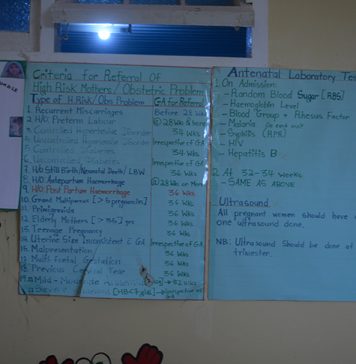 Criteria for Referral OF
High Risk Mothers / Obstetric Problem
Type of H.Risk/Obs Problem GA for Referral
1. Recurrent Miscarriages Before 28 Wks
2. H/O Preterm Labour
3. Controlled Hypertensive Disorder 34 Wks
4. Uncontrolled Hypertensive Disorder Irrespective of GA
5. Controlled Diabetes 34 Wks
6. Uncontrolled Diabetes Irrespective of GA
7. H/O Still Birth/Neonatal Death/LBW 36 Wks
8. H/O Antepartum Haemorrhage
9. H/O Post Partum Haemorrhage 36 Wks
10. Grand Multiparous [>5 pregnancies] 36 Wks
11. Primigravida 36 Wks
12. Elderly Mothers [>35] yrs 36 Wks
13. Teenage Pregnancy 36 Wks
14. Uterine Size Inconsistent č GA Irrespective of GA
15. Malpresentation 36 Wks
17. Multi Foetal Gestation 36 Wks
18. Previous Cervical Tear 36 Wks
Antenatal Laboratory
1. On Admission:
- Random Blood Sugar [RBS]
- Haemoglobin Level
- Blood Group + Rhesus Factor
- Malaria
- Syphilis (RPR)
- HIV
- Hepatitis B
2. At 32-34 weeks
- SAME AS ABOVE
Ultrasound
All pregnant women should have
one ultrasound done.
NB: Ultrasound Should be done at
trimester.